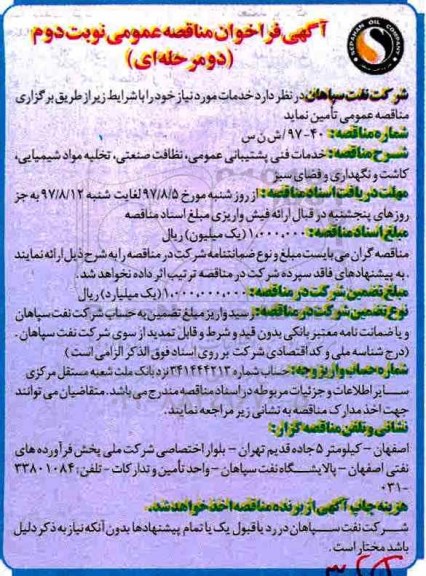 SEPAHAN OIL COMPANY
آگهی فراخوان مناقصه عمومی نوبت دوم
(دومرحله‌ای)
شرکت نفت سپاهان در نظر دارد خدمات مورد نیاز خود را با شرایط زیر از طریق برگزاری
مناقصه عمومی تأمین نماید
شماره مناقصه: ۴۰-۹۷/ش ن س
شرح مناقصه: خدمات فنی پشتیبانی عمومی، نظافت صنعتی، تخلیه مواد شیمیایی،
کاشت و نگهداری و فضای سبز
مهلت دریافت اسناد مناقصه: از روز شنبه مورخ ۹۷/۸/۵ لغایت شنبه ۹۷/۸/۱۲ به جز
روزهای پنجشنبه در قبال ارائه فیش واریزی مبلغ اسناد مناقصه
مبلغ اسناد مناقصه: ۱,۰۰۰,۰۰۰ (یک میلیون) ریال
مناقصه گران می بایست مبلغ و نوع ضمانتنامه شرکت در مناقصه را به شرح ذیل ارائه نمایند
. به پیشنهادهای فاقد سپرده شرکت در مناقصه ترتیب اثر داده نخواهد شد.
مبلغ تضمین شرکت در مناقصه: ۱,۰۰۰,۰۰۰,۰۰۰ (یک میلیارد) ریال
نوع تضمین شرکت در مناقصه: رسید واریز مبلغ تضمین به حساب شرکت نفت سپاهان
و یا ضمانت نامه معتبر بانکی بدون قید و شرط و قابل تمدید از سوی شرکت نفت سپاهان.
(درج شناسه ملی و کد اقتصادی شرکت بر روی اسناد فوق الذکر الزامی است)
شماره حساب واریز وجه: حساب شماره ۳۴۱۴۴۴۲۱۳ نزد بانک ملت شعبه مستقل مرکزی
سایر اطلاعات و جزئیات مربوطه در اسناد مناقصه مندرج می باشد. متقاضیان می توانند
جهت اخذ مدارک مناقصه به نشانی زیر مراجعه نمایند.
نشانی و تلفن مناقصه گزار:
اصفهان - کیلومتر ۵ جاده قدیم تهران - بلوار اختصاصی شرکت ملی پخش فرآورده های
نفتی اصفهان - پالایشگاه نفت سپاهان - واحد تأمین و تدارکات - تلفن: ۳۳۸۰۱۰۸۴
-۰۳۱
هزینه چاپ آگهی از برنده مناقصه اخذ خواهد شد.
شرکت نفت سپاهان در رد یا قبول یک یا تمام پیشنهادها بدون آنکه نیاز به ذکر دلیل
باشد مختار است.